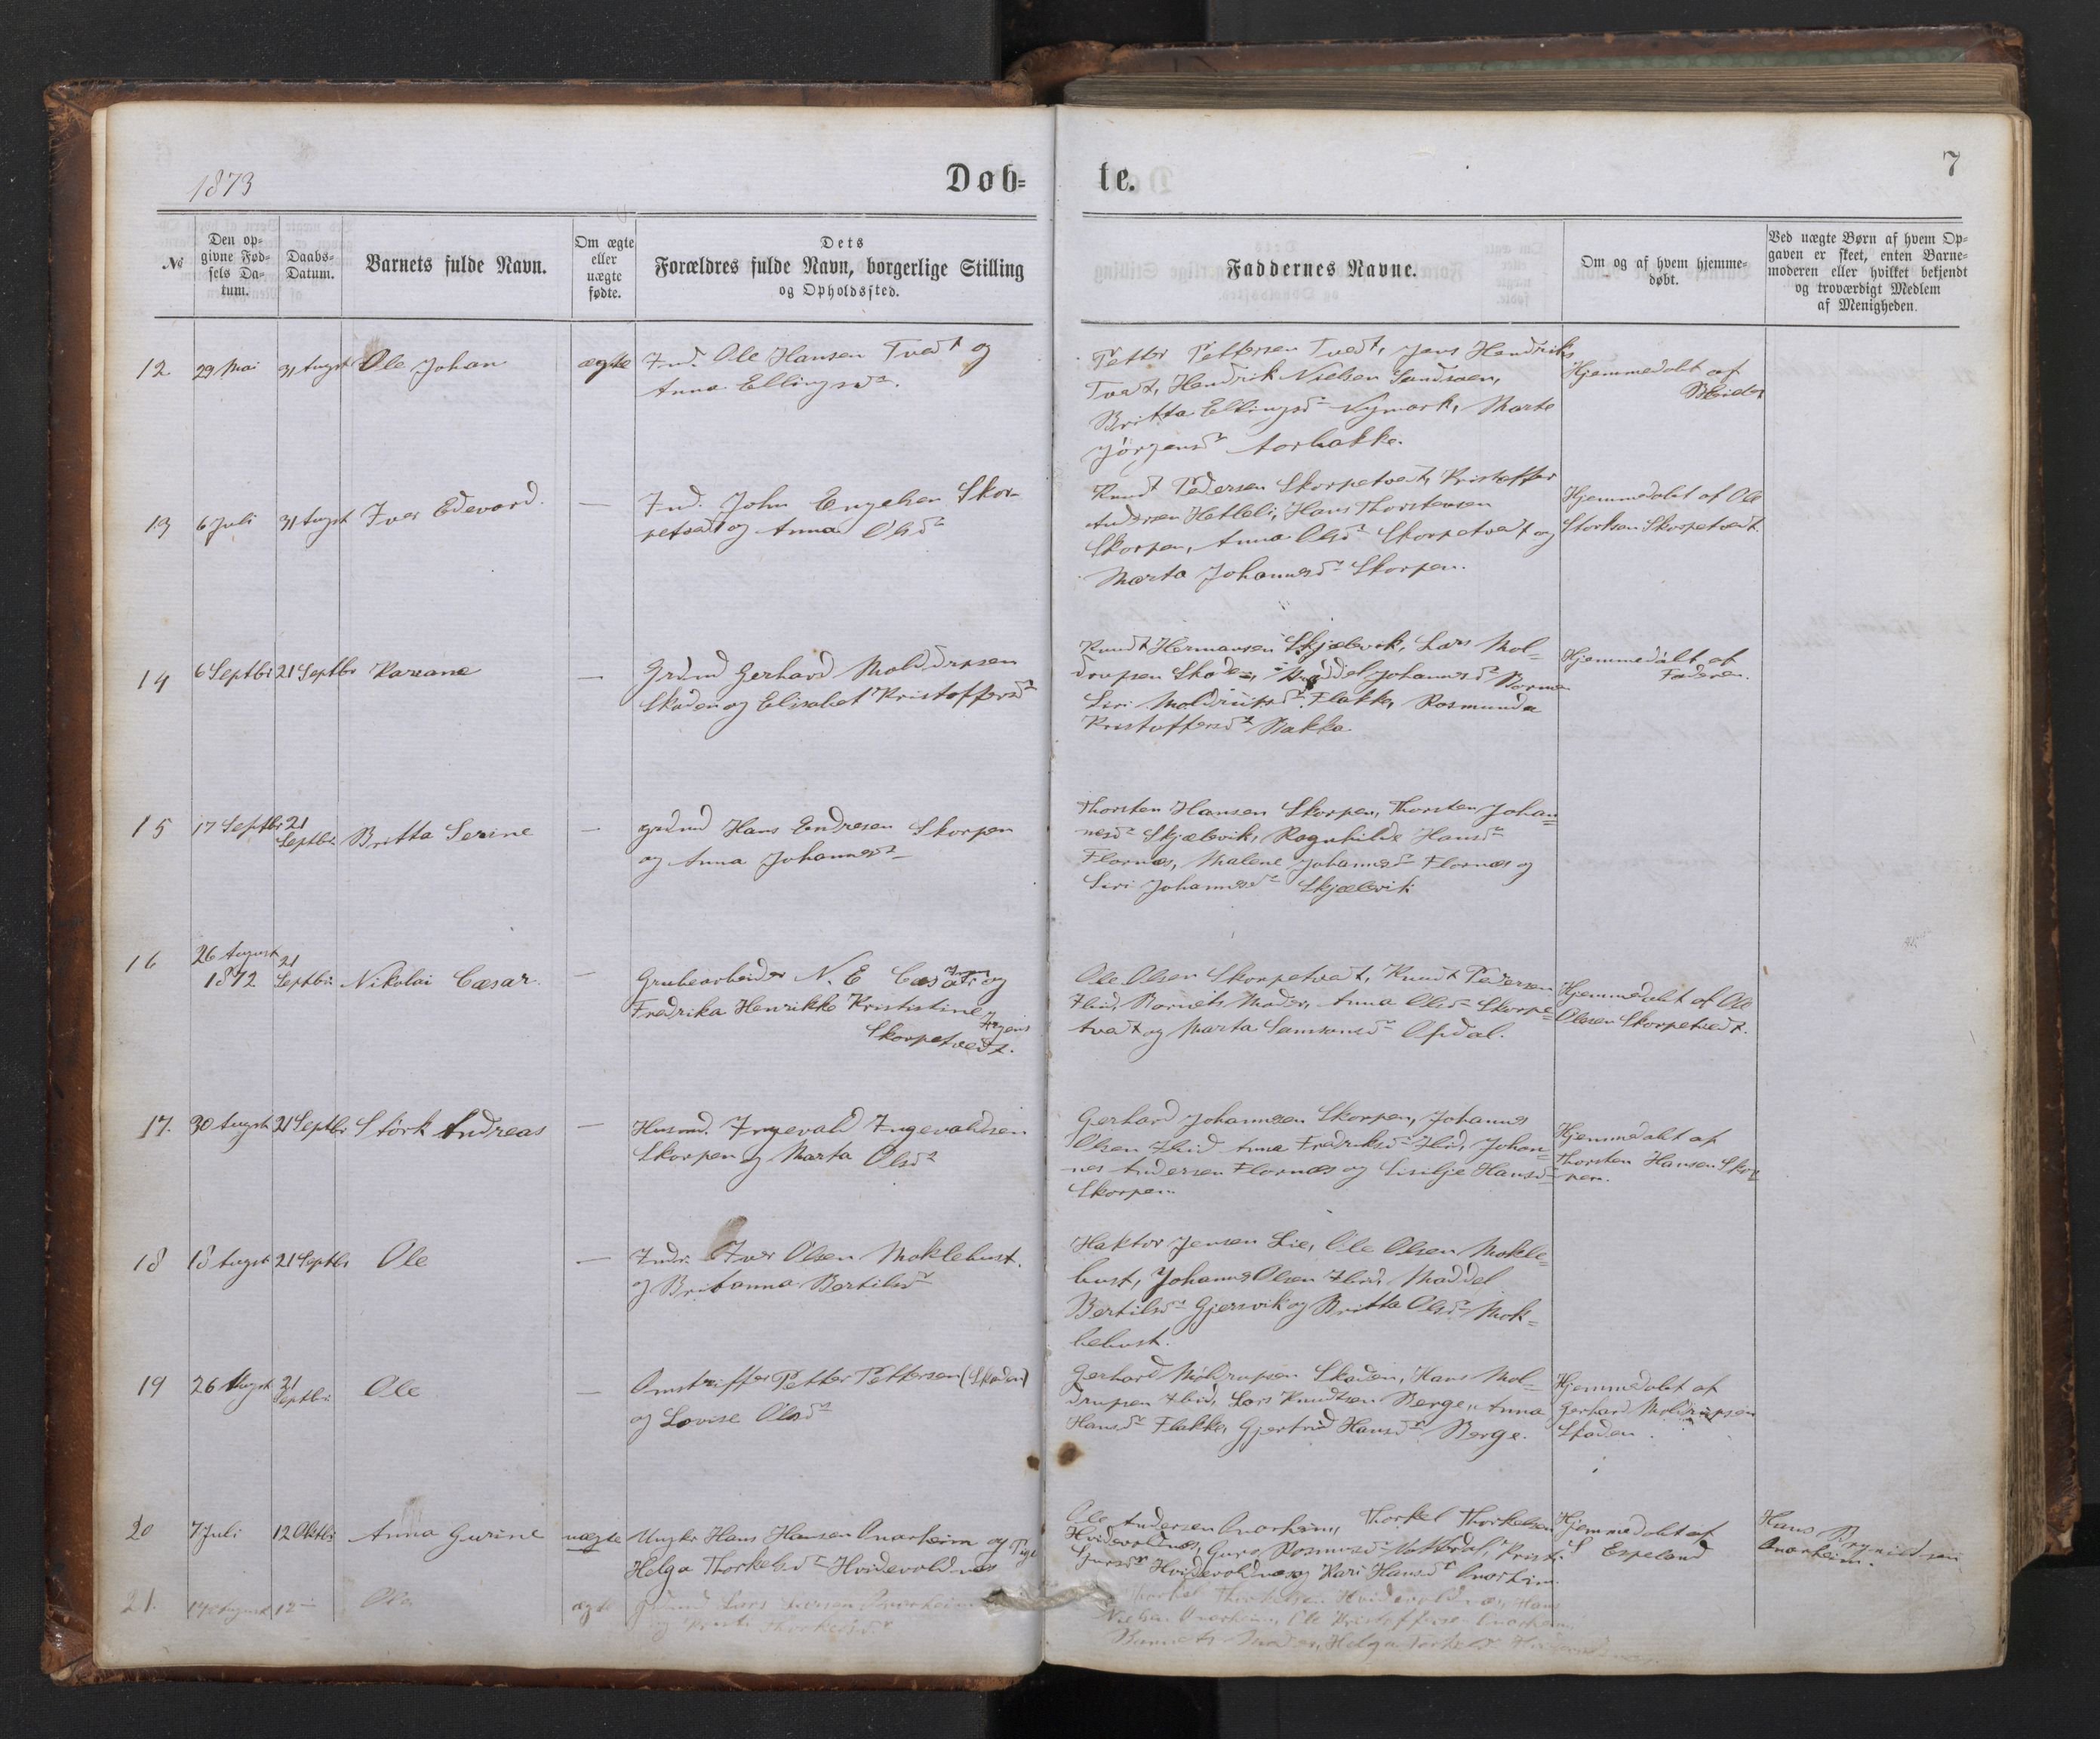 1873
Døb=
te.
7
№
Den op=
givne Fød=
sels Da=
tum.
Daabs=
Datum.
Barnets fulde Navn.
Om ægte
eller
uægte
fødte.
Dets
Forældres fulde Navn, borgerlige Stilling
og Opholdssted.
Faddernes Navne.
Om og af hvem hjemme=
døbt.
Ved uægte Børn af hvem Op=
gaven er skeet, enten Barne=
moderen eller hvilket bekjendt
og troværdigt Medlem
af Menigheden.
12. 29 Mai 31 Augst Ole Johan ægte Ind. Ole Hansen Tvedt og
Anna Ellingsdr.
Petter Pettersen Tvedt, Jens Hendriks
Tvedt, Hendrik Nielsen Sandsøen,
Britta Ellingsdr Nymark, Marte
Jörgensdr Aarbakke.
Hjemmedøbt af
13 6 Juli 31 Augst Iver Edevard. — Ind. John Engelsen Skor-
petvedt og Anna Olsdr
Knudt Pedersen Skorpetvedt, Kristoffer
Andersen Hetleli, Hans Thorstensen
Skorpen, Anna Olsdr Skorpetvedt og
Marta Johannesdr Skorpen.
Hjemmedøbt af Ole
Storksen Skorpetvedt.
14 6 Septbr 21 Septbr Karane — Grdmd Gerhard Moldrupsen
Skaden og Elisabet Kristoffersdr
Knudt Hermansen Skjælevik, Lars Mol=
drupsen Skaden, Maddel Johannesdr
Siri Moldrupsdr Flakke, Rosmunda
Kristoffersdr Bakka
Hjemmedöbt af
Faderen.
15 17 Septbr 21
Septbr. Britta Serine — grdmd Hans Endresen Skorpen
og Anna Johannesdr
Thorsten Hansen Skorpen, Thorsten Johan=
nesdr Skjælevik, Ragnhilde Hansdr
Flornæs, Malene Johannesdr Flornæs og
Siri Johannesdr Skjælevik
16 26 August
1872 21
Septbr. Nikolai Cæsar. — Grubearbeider N. E Casati og
Fredrika Henrikke Krististine
Irgens
Skorpetvedt.
Ole Olsen Skorpetvedt, Knudt Pedersen
Ibid, Barnets Moder, Anna Olsdr Skorpe=
tvedt og Marta Samsonsdr Opdal.
Hjemmedøbt af Ole
Olsen Skorpetvedt.
17. 30 Augst 21 Septbr Störk Andreas — Husmd. Ingevald Ingevaldsen
Skorpen og Marta Olsdr
Gerhard Johannesen Skorpen, Johannes
Olsen Ibid Anna Fredriksdr Ibid, Johan=
nes Andersen Flornæs og Sisilje Hansdr
Skorpen.
Hjemmedøbt af
Thorsten Hansen Skor
pen.
18 18 Augst 21 Septbr Ole — Indr. Iver Olsen Moklebust.
og Britanna Bertilsdr
Haktor Jensen Lie, Ole Olsen Mokle=
bust, Johannes Olsen Ibid, Maddel
Bertilsdr Gjersvik og Britta Olsdr Mok=
lebust.
19 26 Augst 21
Septbr Ole — Omstriffer Petter Pettersen (Skaden)
og Lovise Olsdr
Gerhard Moldrupsen Skaden, Hans Mol=
drupsen Ibid, Lars Knudtsen Berge, Anna
Hansdr Flakke, Gjertrud Hansdr Berge.
Hjemmedøbt af
Gerhard Moldrupsen
Skaden.
20 7 Juli 12 Oktbr Anna Gurine uægte Ungkr Hans Hansen Onarheim og Pige
Helga Thorkelsdr Hvidevoldnæs
Ole Andersen Onarheim, Thorkel Thorkelsen
Hvidevoldnæs, Guro Rasmusdr Kristi
Gjursdr Hvidevoldnæs og Kari Hansdr Onarheim.
Hjemmedøbt af
S Espeland
Hans Brynildsen
Onarheim.
21. 14 August 12 — Ole ægte Grdmd Lars Larsen Onarheim
og Kristi Thorkelsdr.
Thorkel Thorkelsen Hvidevoldnæs, Hans
Nielsen Onarheim, Ole Kristoffersen Onarheim
Barnets Moder, Helga Torkelsdr